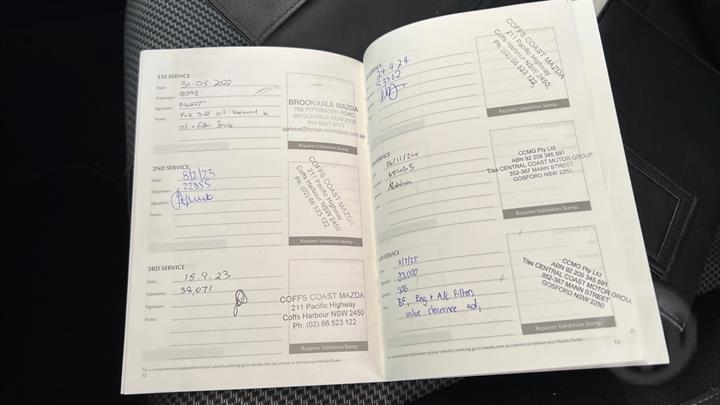 1ST SERVICE
Date: 31.05.2022
Odometer: 8293
Signature:
Notes: Rear Diff oil Replaced &
oil + filter Service
BROOKVALE MAZDA
766 PITTWATER ROAD
BROOKVALE NSW 2100
Ph:
service@brookvalemazda.com.au
Repairer Validation Stamp
2ND SERVICE
Date: 8/2/23
Odometer: 22355
Signature:
Notes:
COFFS COAST MAZDA
211 Pacific Highway
Coffs Harbour NSW 2450
Ph: (02) 66 523 122
Repairer Validation Stamp
3RD SERVICE
Date: 15.9.23
Odometer: 38,071
Signature:
Notes:
COFFS COAST MAZDA
211 Pacific Highway
Coffs Harbour NSW 2450
Ph: (02) 66 523 122
Repairer Validation Stamp
For a comprehensive explanation of your vehicle's servicing go to mazda.com.au/service or contact your Mazda Dealer
12
SERVICE
24.4.24
53302
COFFS COAST MAZDA
211 Pacific Highway
Coffs Harbour NSW 2450
Ph: (02) 66 523 122
Repairer Validation Stamp
SERVICE
26/11/24
CCMG Pty Ltd
ABN 92 209 345 591
T/as CENTRAL COAST MOTOR GROUP
352-387 MANN STREET
GOSFORD NSW 2250
Repairer Validation Stamp
SERVICE
8/7/25
83,000
BF, Eng + A/C filters
valve clearance adj,
CCMG Pty Ltd
ABN 92 209 345 591
T/as CENTRAL COAST MOTOR GROUP
352-387 MANN STREET
GOSFORD NSW 2250
Repairer Validation Stamp
comprehensive explanation of your vehicle's servicing go to mazda.com.au/service or contact your Mazda Dealer
13